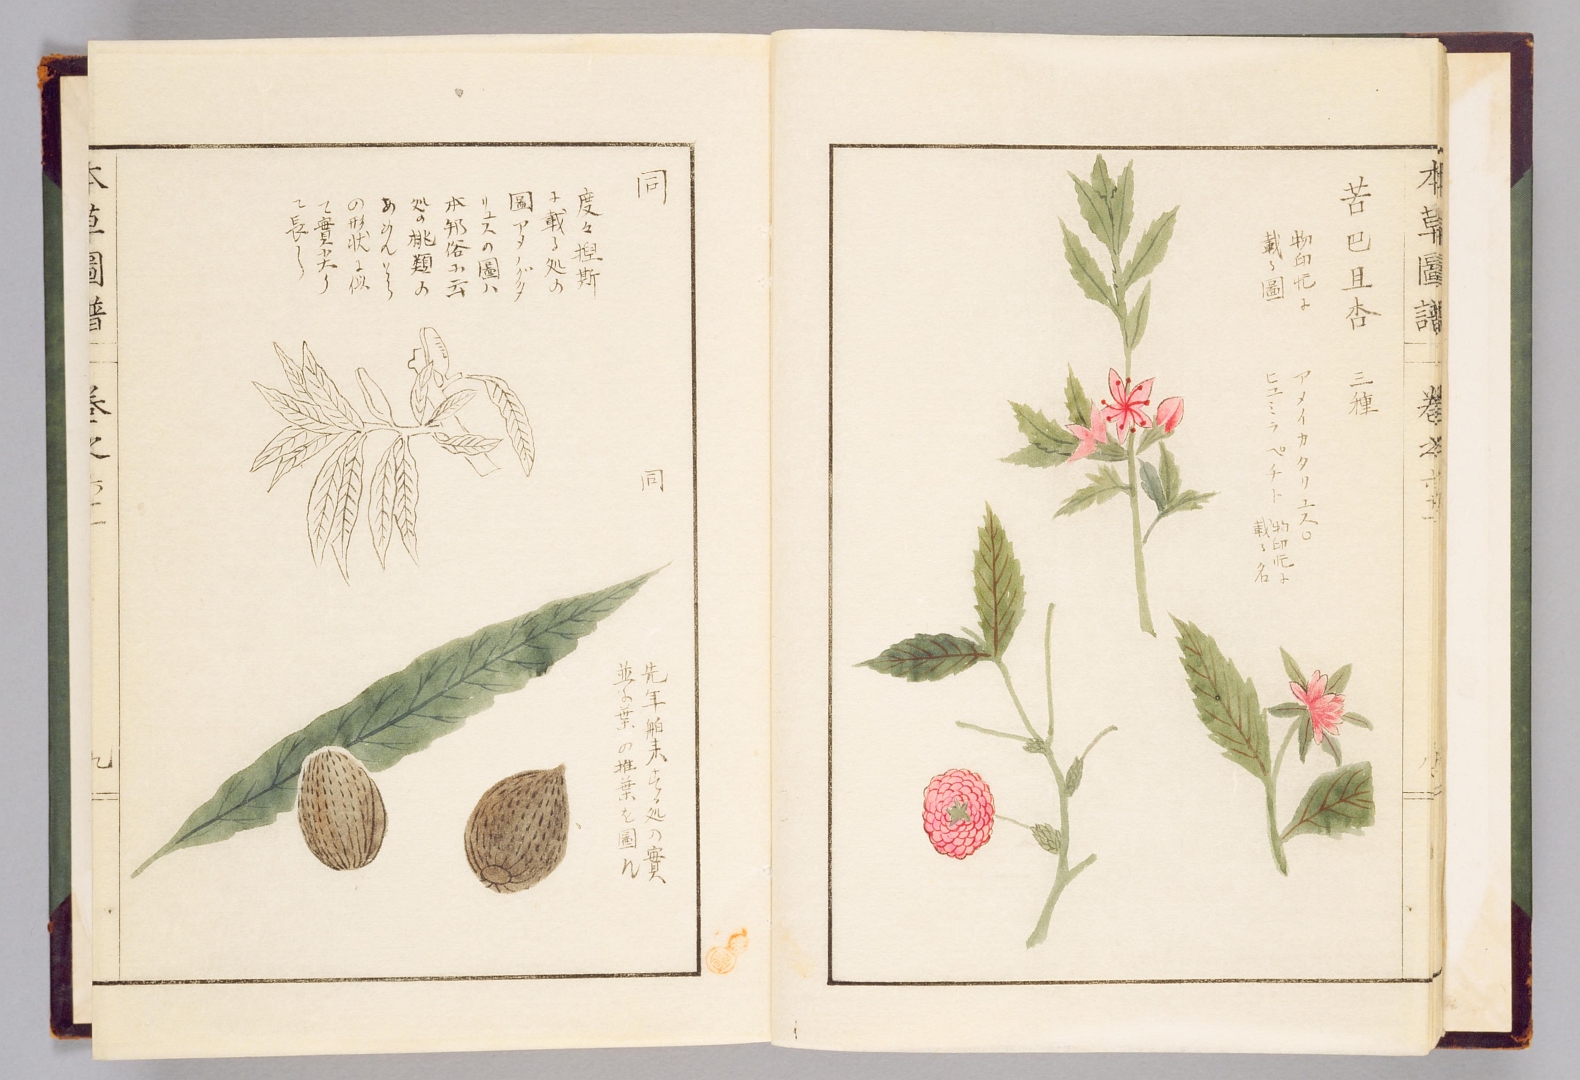 本草圖譜 巻之六十一
苦巴且杏 三種
物印忙ニ
載ル圖
アメイカタリユス〇
ヒユミラ ペチト
物印忙ニ
載ル名
同
度々揑斯
ニ載る処の
圖アメーグダ
リユスの圖ハ
本邦俗ニ云
処の桃類の
あめんどう
の形状に似
て實尖り
て長し
同
先年舶来する処の實
並に葉の推葉を圖す
本草圖譜 巻之六十一 九